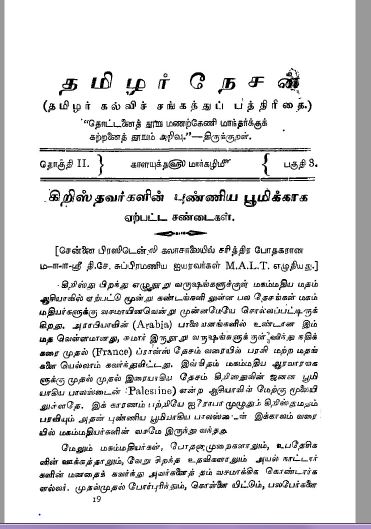 தமிழர் நேசன்
(தமிழர் கல்விச் சங்கத்துப் பத்திரிகை.)
"தொட்டனைத் தூறு மணற்கேணி மாந்தர்க்குக்
கற்றனைத் தூறும் அறிவு."—திருக்குறள்.
தொகுதி II. } காளயுக்தி௵ மார்கழி௴ { பகுதி 3.
கிறிஸ்தவர்களின் புண்ணிய பூமிக்காக
ஏற்பட்ட சண்டைகள்.
[சென்னை பிரஸிடென்ஸி கலாசாலையில் சரித்திர போதகரான
ம-ா-ா-ஸ்ரீ தி.சே. சுப்பிரமணிய ஐயரவர்கள் M.A.L.T. எழுதியது.]
கிறிஸ்து பிறந்து எழுநூறு வருஷங்களுக்குள் மகம்மதிய மதம்
ஆசியாவில் ஏற்பட்டு மூன்று கண்டங்களிலுள்ள பல தேசங்கள் மகம்
மதியர்களுக்கு வசமாயினவென்று முன்னமேயே சொல்லப்பட்டிருக்
கிறது. அராபியாவின் (Arabia) பாலைவனங்களில் உண்டான இம்
மத வெள்ளமானது, சுமார் இருநூறு வருஷங்களுக்குள்
கரை முதல் (France) பிரான்ஸ் தேசம் வரையில் பரவி மற்ற மதங்
களை யெல்லாம் கவர்ந்துவிட்டது. இவ்விதம் மகம்மதிய ஆரவாரங்க
ளுக்கு முதல் முதல் இரையாகிய தேசம் கிறிஸ்துவின் ஜனன பூமி
யாகிய பாலஸ்டைன் (Palesine) என்ற ஆசியாவின் மேற்கு மூலையி
லுள்ளதே. இக் காரணம் பற்றியே ஐரோபா முழுதும் கிறிஸ்துமதம்
பரவியும் அதன் புண்ணிய பூமியாகிய பாலஸ்டைன் இக்காலம் வரை
யில் மகம்மதியர்களின் வசமே இருந்து வந்தது.
மேலும் மகம்மதியர்கள், போதனாமுறைகளாலும், உபதேசிக
ளின் ஊக்கத்தாலும், வேறு சிறந்த உதவிகளாலும் அயல் நாட்டார்
களின் மனதைக் கவர்ந்து அவர்களைத் தம் வசமாக்கிக் கொண்டார்க
ளல்லர். முதல்முதல் போர்புரிந்தும், கொள்ளை யிட்டும், பலபேர்களை
19